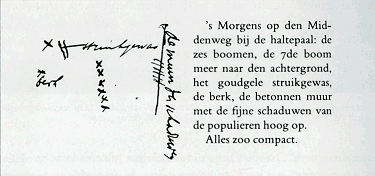 struikgewas
berk
de muur des schaduws
's Morgens op den Mid-
denweg bij de haltepaal: de
zes boomen, de 7de boom
meer naar den achtergrond,
het goudgele struikgewas,
de berk, de betonnen muur
met de fijne schaduwen van
de populieren hoog op.
Alles zoo compact.